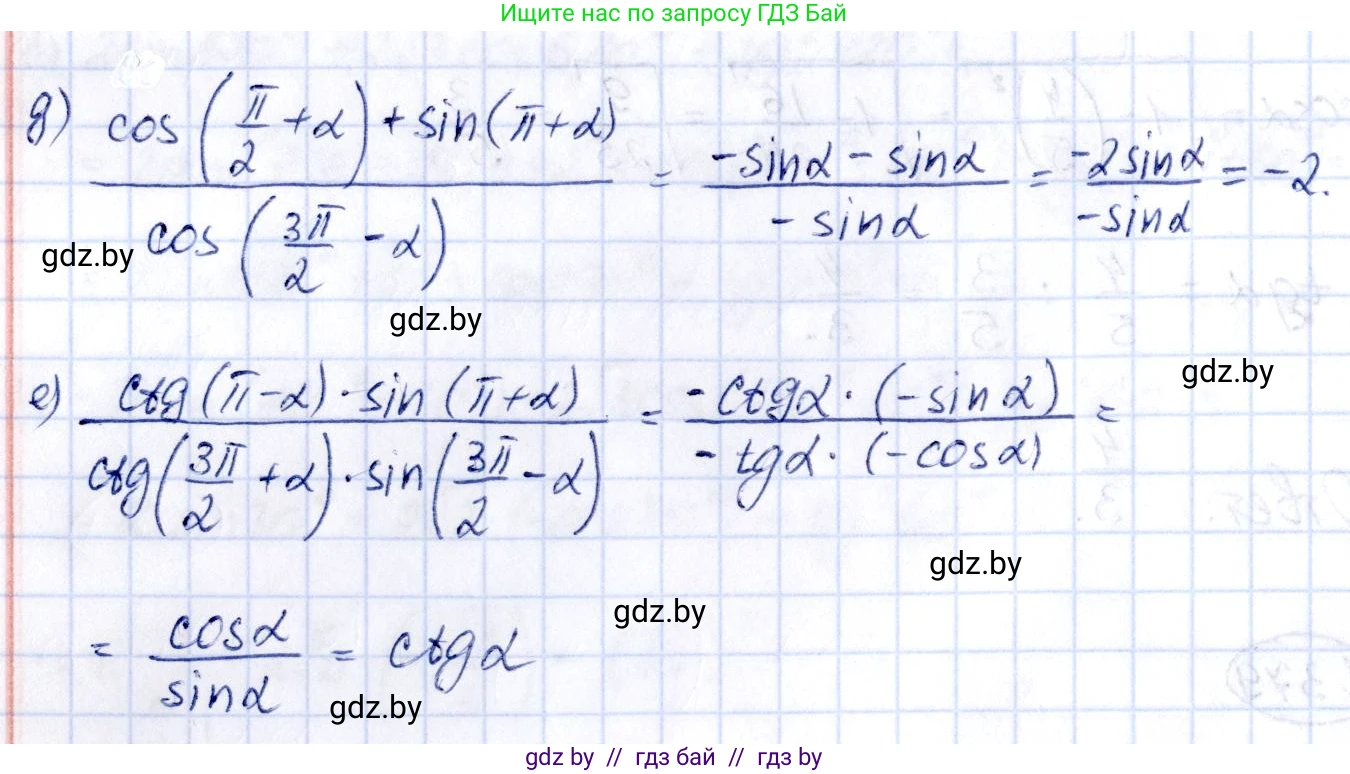 Ищите нас по запросу ГДЗ Бай
д) (cos(π/2 + α) + sin(π + α)) / cos(3π/2 - α) = (-sinα - sinα) / (-sinα) = (-2sinα) / (-sinα) = -2.
gdz.by
gdz.by
gdz.by
е) (ctg(π - α) · sin(π + α)) / (ctg(3π/2 + α) · sin(3π/2 - α)) = (-ctgα · (-sinα)) / (-tgα · (-cosα)) =
gdz.by
gdz.by
= cosα / sinα = ctgα
gdz.by
gdz by // гдз бай // гдз by